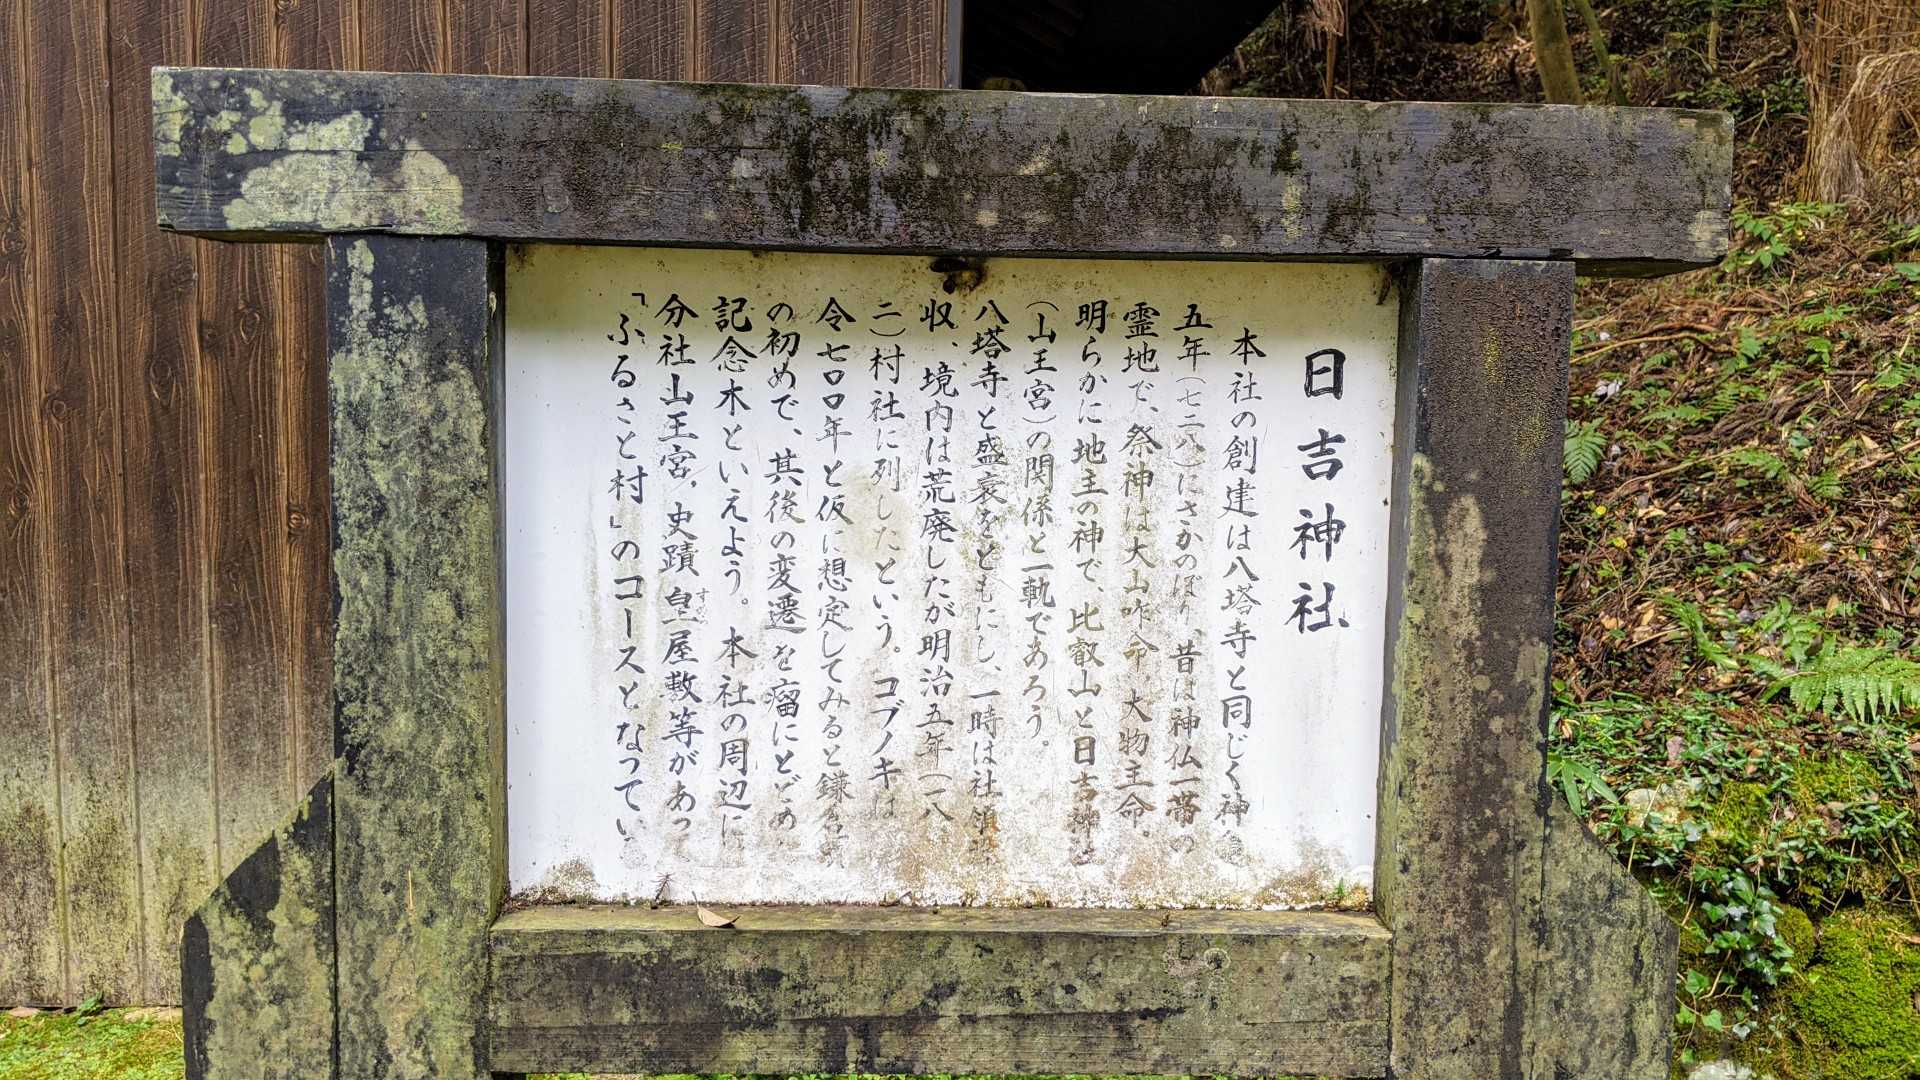 日吉神社
本社の創建は八塔寺と同じく神亀
五年（七二八）にさかのぼり、昔は神仏一帯の
霊地で、祭神は大山咋命、大物主命。
明らかに地主の神で、比叡山と日吉神社
（山王宮）の関係と一軌であろう。
八塔寺と盛衰をともにし、一時は社領
収、境内は荒廃したが明治五年（一八
二）村社に列したという。コブノキは
令七〇〇年と仮に想定してみると鎌倉
の初めで、其後の変遷を瘤にとどめ
記念木といえよう。本社の周辺に
分社山王宮、史蹟皇屋敷等があって
「ふるさと村」のコースとなってい